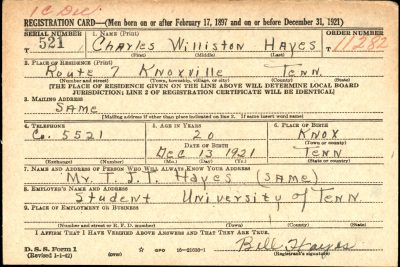 1C Dec.
REGISTRATION CARD—(Men born on or after February 17, 1897 and on or before December 31, 1921)
SERIAL NUMBER 1. NAME (Print) ORDER NUMBER
521 Charles Williston Hayes 11282
(First) (Middle) (Last)
2. PLACE OF RESIDENCE (Print)
Route 7 Knoxville Tenn.
(Number and street) (Town, township, village, or city) (County) (State)
[THE PLACE OF RESIDENCE GIVEN ON THE LINE ABOVE WILL DETERMINE LOCAL BOARD
JURISDICTION; LINE 2 OF REGISTRATION CERTIFICATE WILL BE IDENTICAL]
3. MAILING ADDRESS
SAME
[Mailing address if other than place indicated on line 2. If same insert word same]
4. TELEPHONE 5. AGE IN YEARS 6. PLACE OF BIRTH
Co. 5521 20 KNOX
DATE OF BIRTH (Town or county)
Dec 13 1921 Tenn
(Exchange) (Number) (Mo.) (Day) (Yr.) (State or country)
7. NAME AND ADDRESS OF PERSON WHO WILL ALWAYS KNOW YOUR ADDRESS
Mr. T. J. T. Hayes (SAME)
8. EMPLOYER'S NAME AND ADDRESS
Student University of Tenn.
9. PLACE OF EMPLOYMENT OR BUSINESS
(Number and street or R. F. D. number) (Town) (County) (State)
I AFFIRM THAT I HAVE VERIFIED ABOVE ANSWERS AND THAT THEY ARE TRUE.
D. S. S. Form 1 GPO 16-21630-1 Bill Hayes
(Revised 1-1-42) (over) (Registrant's signature)